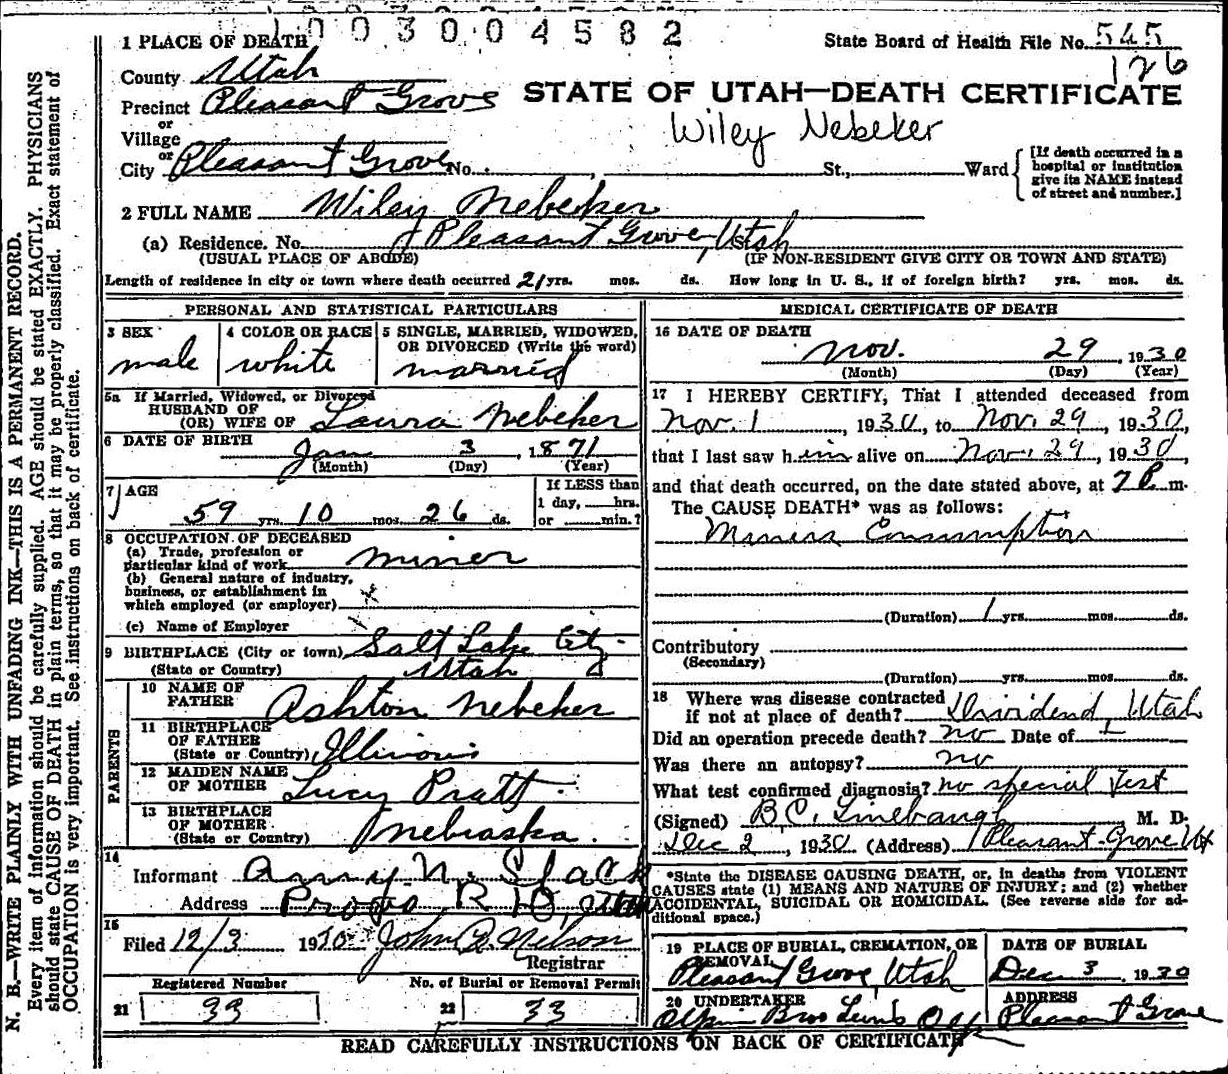 1003004582
1 PLACE OF DEATH
State Board of Health File No. 545
126
County Utah
Precinct Pleasant Grove
STATE OF UTAH—DEATH CERTIFICATE
or
Village
Wiley Nebeker
or
City Pleasant Grove No. , St., Ward
[If death occurred in a hospital or institution give its NAME instead of street and number.]
2 FULL NAME Wiley Nebeker
(a) Residence. No. Pleasant Grove, Utah St.
(USUAL PLACE OF ABODE) (IF NON-RESIDENT GIVE CITY OR TOWN AND STATE)
Length of residence in city or town where death occurred 21 yrs. mos. ds. How long in U. S., if of foreign birth? yrs. mos. ds.
PERSONAL AND STATISTICAL PARTICULARS
3 SEX
male
4 COLOR OR RACE
white
5 SINGLE, MARRIED, WIDOWED, OR DIVORCED (Write the word)
married
5a If Married, Widowed, or Divorced
HUSBAND OF
(OR) WIFE OF Laura Nebeker
6 DATE OF BIRTH
Jan 3, 1871
(Month) (Day) (Year)
7 AGE
59 yrs. 10 mos. 26 ds.
If LESS than
1 day, hrs.
or min.?
8 OCCUPATION OF DECEASED
(a) Trade, profession or
particular kind of work miner
(b) General nature of industry,
business, or establishment in
which employed (or employer) x
(c) Name of Employer
9 BIRTHPLACE (City or town) Salt Lake City
(State or Country) Utah
PARENTS
10 NAME OF
FATHER Ashton Nebeker
11 BIRTHPLACE
OF FATHER
(State or Country) Illinois
12 MAIDEN NAME
OF MOTHER Lucy Pratt
13 BIRTHPLACE
OF MOTHER
(State or Country) Nebraska
14
Informant Amy N. Slack
Address Provo, R D, Utah
15
Filed 12/3 1930 John Nelson
Registrar
Registered Number
21 33
No. of Burial or Removal Permit
22 33
MEDICAL CERTIFICATE OF DEATH
16 DATE OF DEATH
Nov. 29, 1930
(Month) (Day) (Year)
17 I HEREBY CERTIFY, That I attended deceased from
Nov. 1, 1930, to Nov. 29, 1930,
that I last saw him alive on Nov. 29, 1930,
and that death occurred, on the date stated above, at 7 P. m.
The CAUSE DEATH* was as follows:
Miners Consumption
(Duration) 1 yrs. mos. ds.
Contributory
(Secondary)
(Duration) yrs. mos. ds.
18 Where was disease contracted
if not at place of death? Dividend, Utah
Did an operation precede death? no Date of —
Was there an autopsy? no
What test confirmed diagnosis? no special test
(Signed) B.C. Linebaugh M. D.
Dec 2, 1930 (Address) Pleasant Grove Ut
*State the DISEASE CAUSING DEATH, or, in deaths from VIOLENT
CAUSES state (1) MEANS AND NATURE OF INJURY; and (2) whether
ACCIDENTAL, SUICIDAL OR HOMICIDAL. (See reverse side for ad-
ditional space.)
19 PLACE OF BURIAL, CREMATION, OR
REMOVAL
Pleasant Grove, Utah
DATE OF BURIAL
Dec 3 1930
20 UNDERTAKER
Olpin Bros
ADDRESS
Pleasant Grove
READ CAREFULLY INSTRUCTIONS ON BACK OF CERTIFICATE
N. B.—WRITE PLAINLY WITH UNFADING INK—THIS IS A PERMANENT RECORD.
Every item of information should be carefully supplied. AGE should be stated EXACTLY. PHYSICIANS
should state CAUSE OF DEATH in plain terms, so that it may be properly classified. Exact statement of
OCCUPATION is very important. See instructions on back of certificate.